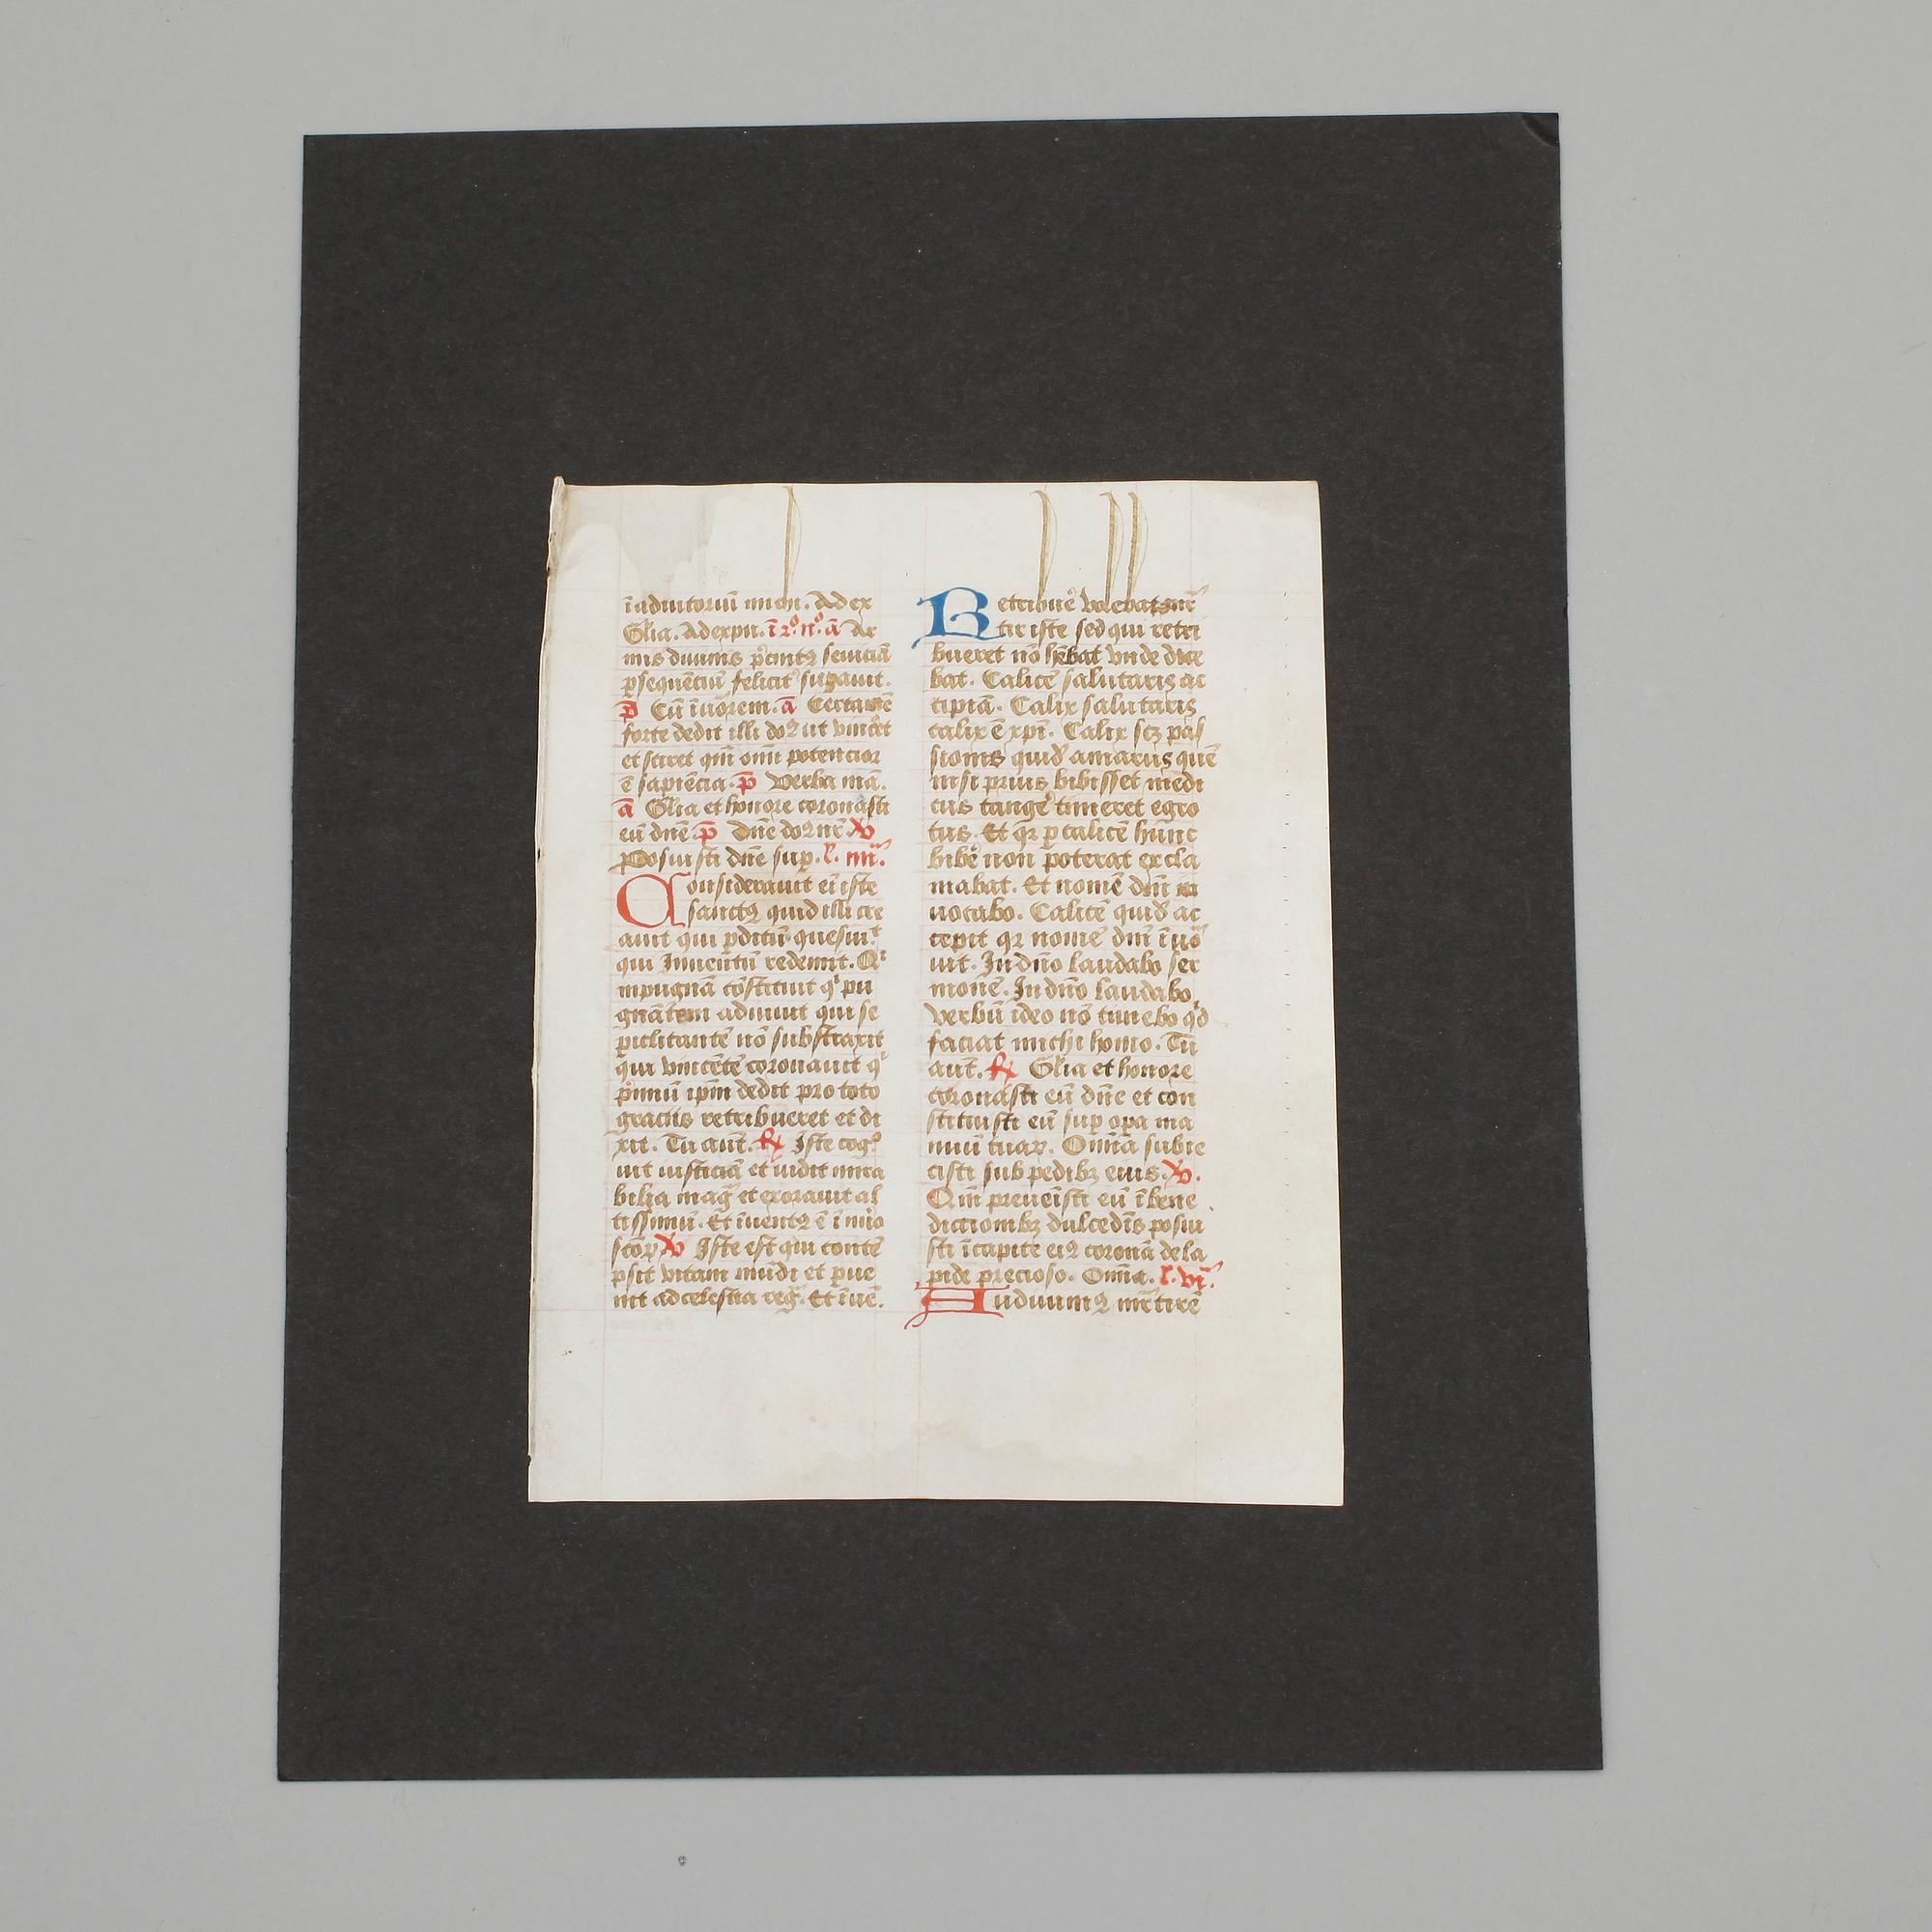 ī adiutoriū michi. Ad ex
Gl̄ia. Ad expu. ī 2º. nº. ā Ar
mis diuinis p̄cinctꝰ seuiciā
ꝑsequēciū felicit̄ sugauit.
p̄ Cū īuocarem. ā Certamē
forte dedit illi doꝰ ut vincēt
et sciret qm̄ om̄i potencior
ē sapiēcia. p̄ Verba mā.
ā Gl̄ia et honore coronasti
eū dn̄e. p̄ Dn̄e doꝰ nr̄ ℣
Posuisti dn̄e sup. l. iiii.
Considerauit ei iste
sanctꝰ quid illi cre
auit qui ꝑditū quesiuit
qui Inuentū redemit. Qⁱ
impugnā cōstituit qⁱ pu
gnātem adiuuit qui se
ꝑiclitantē nō substraxit
qui vincētē coronauit qⁱ
p̄mū ip̄m dedit pro toto
graciis retribueret et di
xit. Tu aut̄. ℟ Iste cogº
uit iusticiā et uidit mira
bilia maḡ et exorauit al
tissimū. Et īuentꝰ ē ī nūo
sc̄oꝝ ℣ Iste est qui contē
psit vitam mūdi et ꝑue
nit ad celestia reḡ. Et īuē.
Retribue᷑ volebat mr̄
tir iste sed qui retri
bueret nō hēbat vnde dice
bat. Calicē salutaris ac
cipiā. Calix salutaris
calix ē xp̄i. Calix scꝫ pas
sionis quidē amarus quē
nisi prius bibisset medi
cus tange᷑ timeret egro
tus. Et qꝛ ꝑ calicē hunc
bibe᷑ non poterat excla
mabat. Et nomē dn̄i in
uocabo. Calicē quidē ac
cepit qꝛ nomē dn̄i īuo
uit. In dn̄o laudabo ser
monē. In dn̄o laudabo
verbū ideo nō timebo qd̄
faciat michi homo. Tu
aut̄. ℟ Gl̄ia et honore
coronasti eū dn̄e et con
stituisti eū suꝑ oꝑa ma
nuū tuaꝝ. Om̄ia subie
cisti sub pedibꝫ eius. ℣.
Qm̄ preueīsti eū ī bene
dictionibꝫ dulcedīs posui
sti ī capite eiꝰ coronā de la
pide precioso. Om̄ia. l. vi.
Audiuimꝰ mr̄tirē